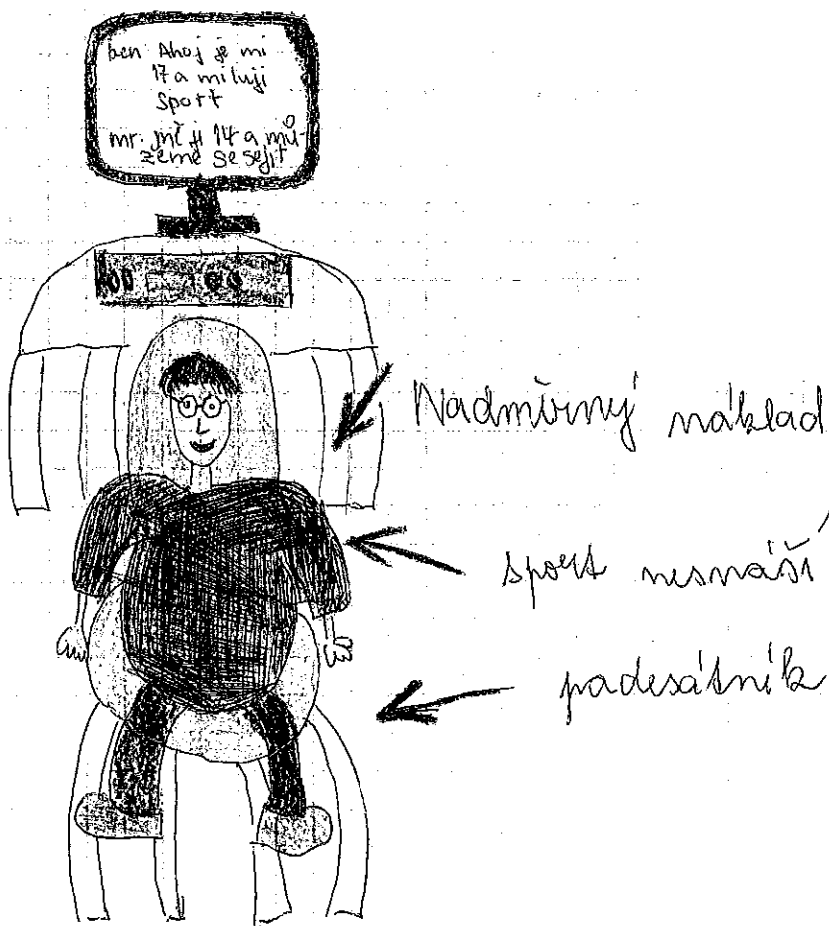 ben Ahoj je mi
17 a miluji
sport
mr. mě ji 14 a mů-
žeme se sejít
Nadměrný náklad
sport nesnáší
padesátník